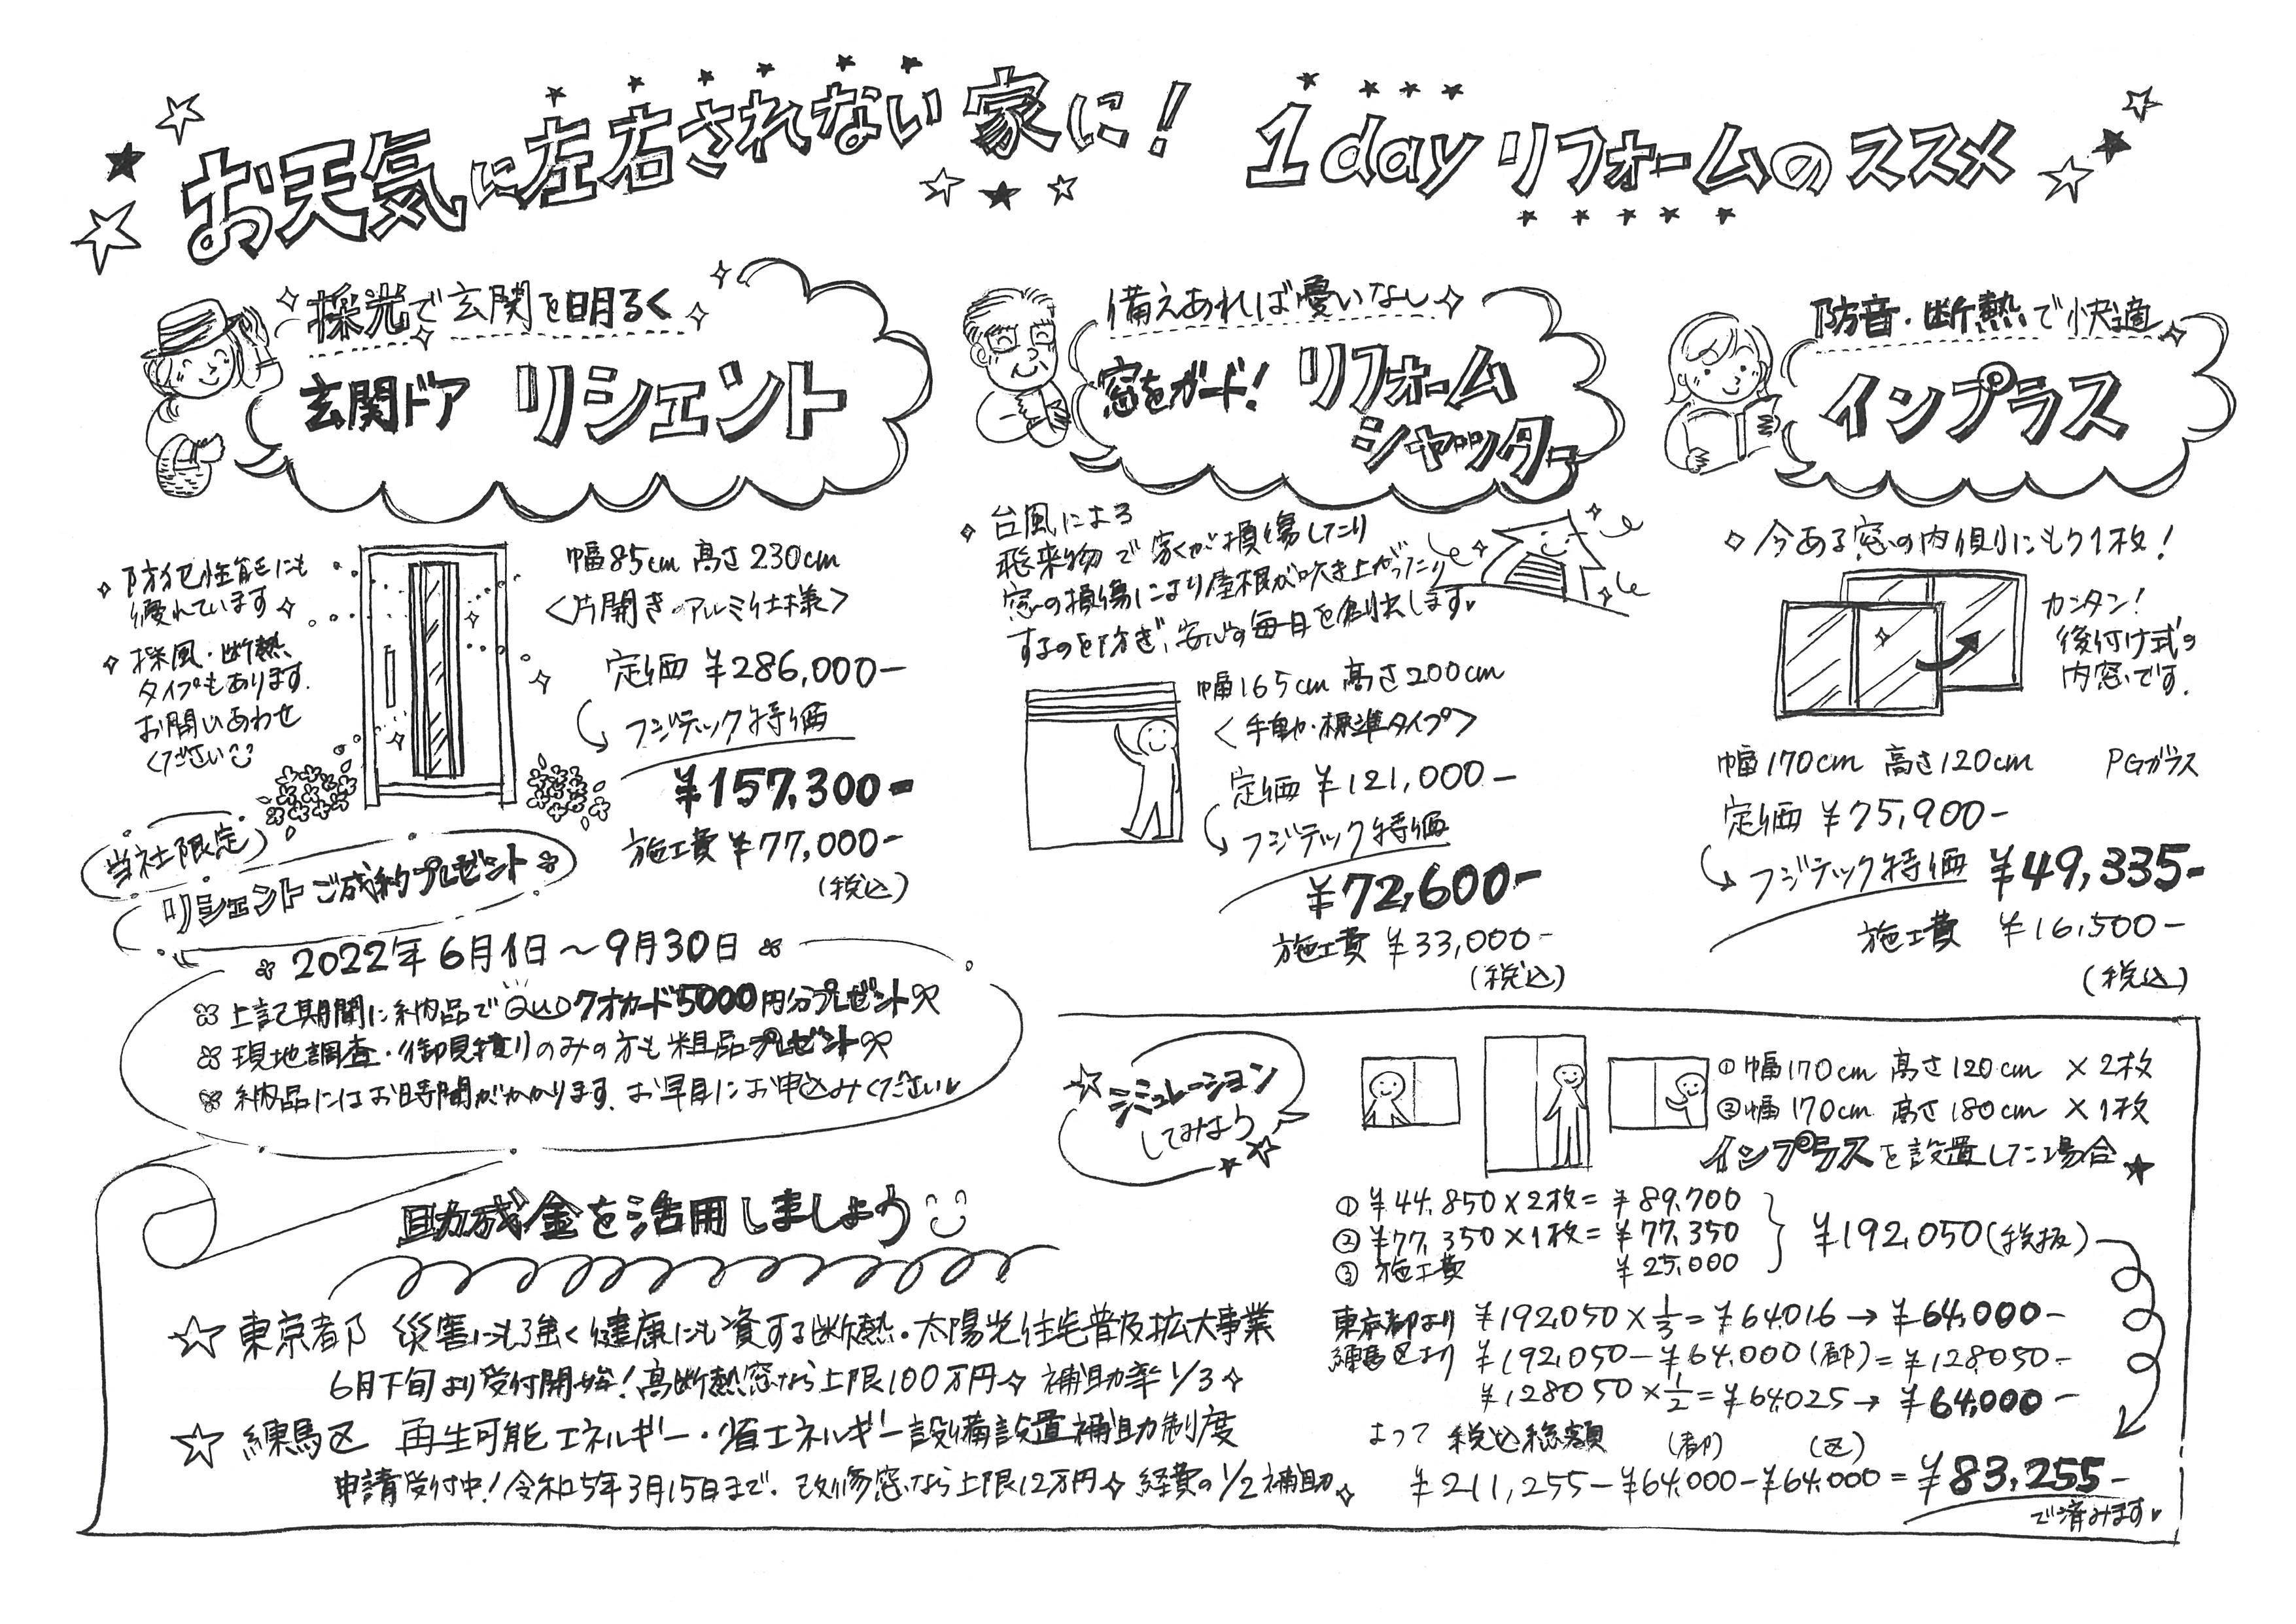 お天気に左右されない家に！ 1dayリフォームのススメ
採光で玄関を明るく
玄関ドア リシェント
・防犯性能にも
優れています
・採風・断熱
タイプもあります。
お問いあわせ
ください
幅85cm 高さ230cm
<片開き・アルミ仕様>
定価 ¥286,000−
フジテック特価
¥157,300−
施工費 ¥77,000−
(税込)
当社限定
リシェントご成約プレゼント
2022年6月1日〜9月30日
上記期間に納品でQUOクオカード5000円分プレゼント
現地調査・御見積りのみの方も粗品プレゼント
納品にはお時間がかかります。お早目にお申込みください
備えあれば憂いなし
窓をガード！ リフォーム
シャッター
台風による
飛来物で家が損傷したり
窓の損傷により屋根が吹き上がったり
するのを防ぎ、安心の毎日を創出します
幅165cm 高さ200cm
<手動・標準タイプ>
定価 ¥121,000−
フジテック特価
¥72,600−
施工費 ¥33,000−
(税込)
防音・断熱で快適
インプラス
今ある窓の内側にもう1枚！
カンタン！
後付け式の
内窓です。
幅170cm 高さ120cm PGガラス
定価 ¥75,900−
フジテック特価 ¥49,335−
施工費 ¥16,500−
(税込)
助成金を活用しましょう
☆東京都 災害にも強く健康にも資する断熱・太陽光住宅普及拡大事業
6月下旬より受付開始！高断熱窓なら上限100万円 補助率1/3
☆練馬区 再生可能エネルギー・省エネルギー設備設置補助制度
申請受付中！令和5年3月15日まで。改修窓なら上限12万円 経費の1/2補助
☆シミュレーション
してみよう
①幅170cm 高さ120cm ×2枚
②幅170cm 高さ180cm ×1枚
インプラスを設置した場合★
① ¥44,850×2枚=¥89,700
② ¥77,350×1枚=¥77,350
③ 施工費 ¥25,000
¥192,050(税抜)
東京都より ¥192,050×1/3=¥64016→¥64,000−
練馬区より ¥192,050−¥64,000(都)=¥128,050−
¥128050×1/2=¥64025→¥64,000−
よって 税込総額 (都) (区)
¥211,255−¥64,000−¥64,000=¥83,255−
で済みます